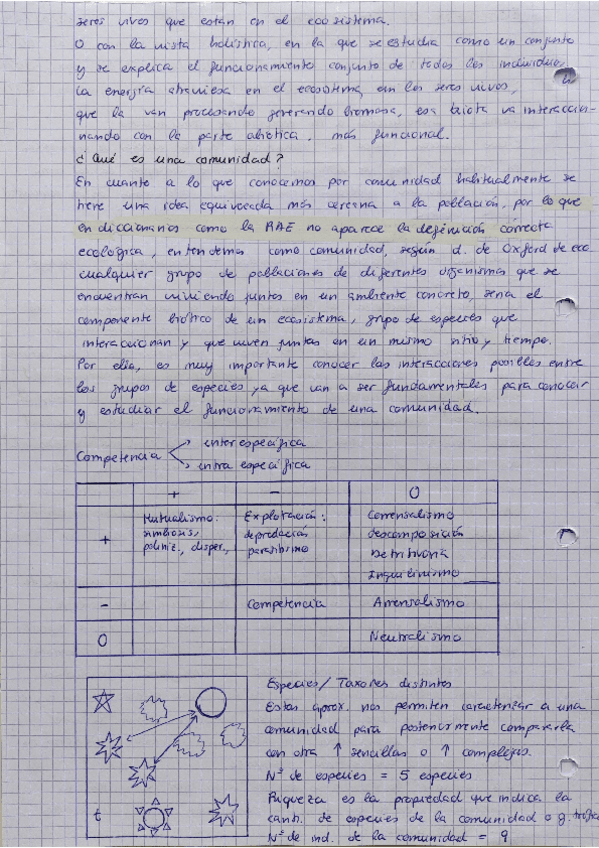 seres vivos que están en el ecosistema.
O con la vista holística, en la que se estudia como un conjunto
y se explica el funcionamiento conjunto de todos los individuos,
la energía atraviesa en el ecosistema, en los seres vivos,
que la van procesando generando biomasa, esa biota va interaccio-
nando con la parte abiótica. más funcional.
¿Qué es una comunidad?
En cuanto a lo que conocemos por comunidad habitualmente se
tiene una idea equivocada más cercana a la población, por lo que
en diccionarios como la RAE no aparece la definición correcta
ecológica, entendemos como comunidad, según d. de Oxford de eco
cualquier grupo de poblaciones de diferentes organismos que se
encuentran viviendo juntos en un ambiente concreto, sería el
componente biótico de un ecosistema, grupo de especies que
interaccionan y que viven juntas en un mismo sitio y tiempo.
Por ello, es muy importante conocer las interacciones posibles entre
los grupos de especies ya que van a ser fundamentales para conocer
y estudiar el funcionamiento de una comunidad.
Competencia
interespecífica
intraespecífica
+ - 0
+ Mutualismo: Explotación: Comensalismo
simbiosis, depredación descomposición
poliniz., disper., parasitismo Detritívoria
Inquilinismo
- Competencia Amensalismo
0 Neutralismo
Especies/ Taxones distintos
Estas aprox. nos permiten caracterizar a una
comunidad para posteriormente compararla
con otra ↑ sencillas o ↑ complejas.
Nº de especies = 5 especies
t
Riqueza es la propiedad que indica la
cant. de especies de la comunidad o g. trófico
Nº de ind. de la comunidad = 9